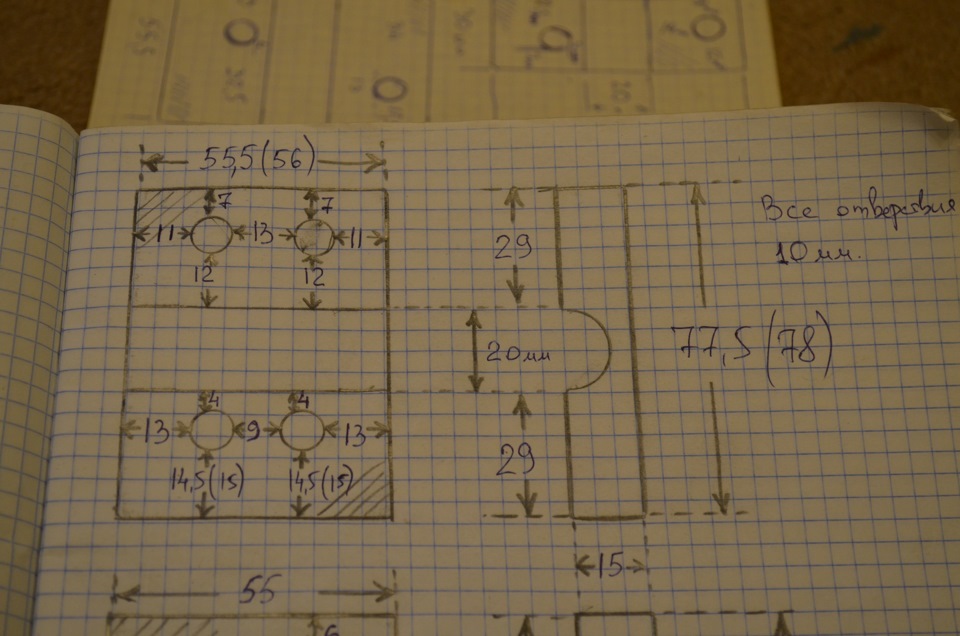 55,5(56)
7 7
11 13 11
12 12
29
Все отверстия
10мм.
20мм
77,5(78)
4 4
13 9 13
14,5(15) 14,5(15)
29
15
55
6